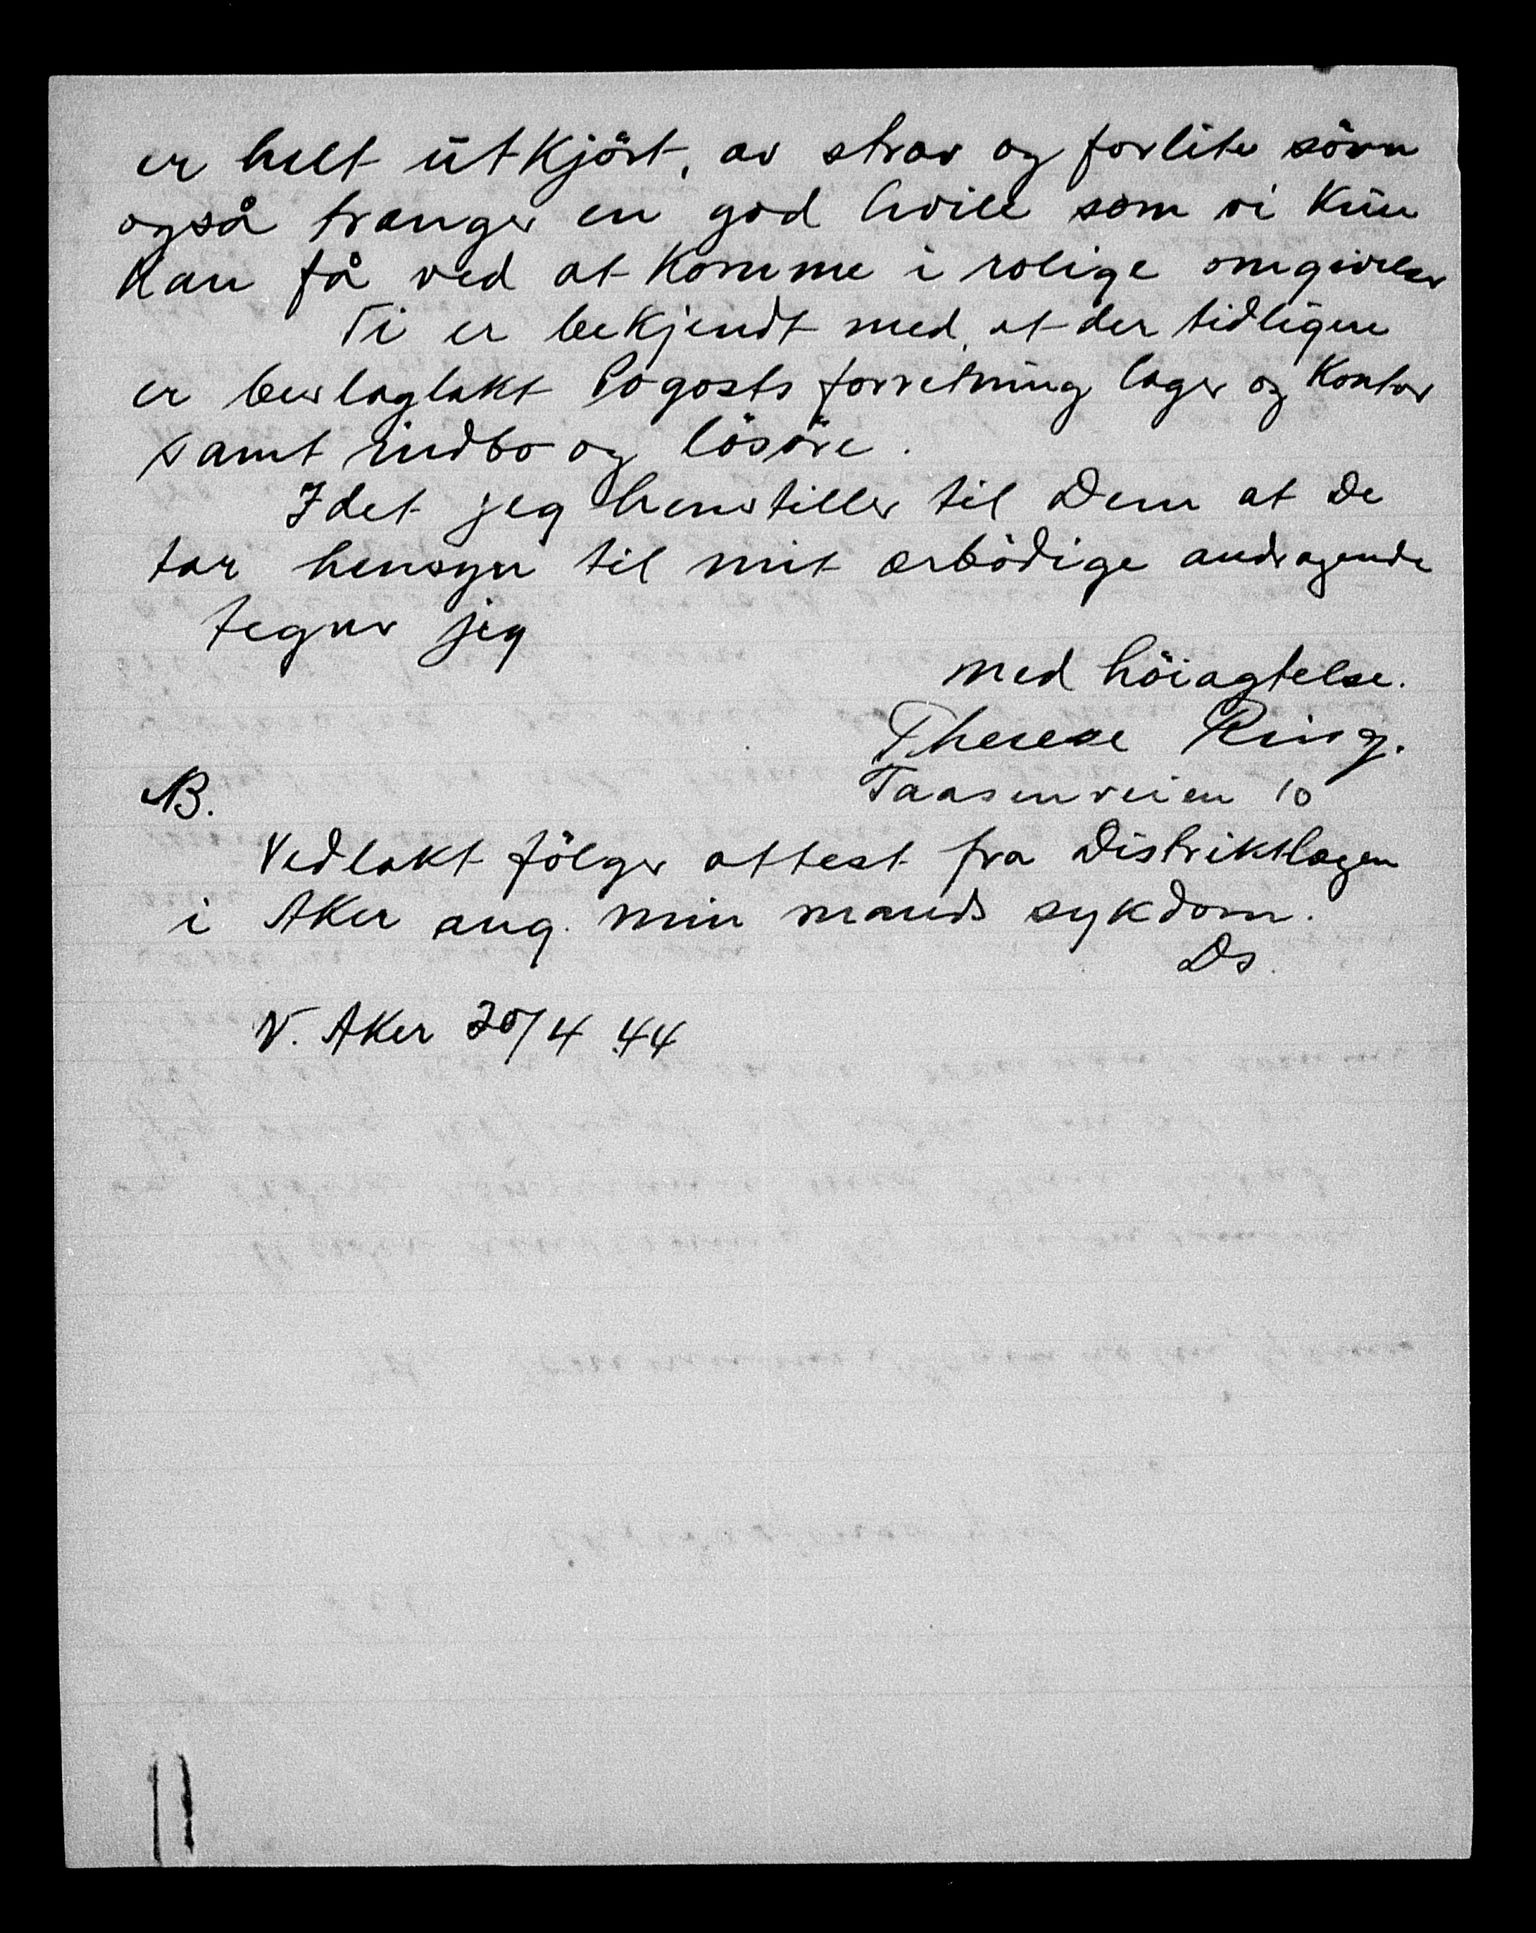 er helt utkjört, av strev og forlite sövn
også trænger en god hvile som vi kun
kan få ved at komme i rolige omgivelser
Vi er bekjendt med, at der tidligere
er beslaglakt Pogosts forretning lager og kontor
samt indbo og lösöre.
Idet jeg henstiller til Dem at De
tar hensyn til mit ærbödige andragende
tegner jeg
med höiagtelse.
Therese Ring.
Taasenveien 10
NB.
Vedlakt fölger attest fra Distriktlægen
i Aker ang. min mands sykdom.
Ds.
V. Aker 20/4 44